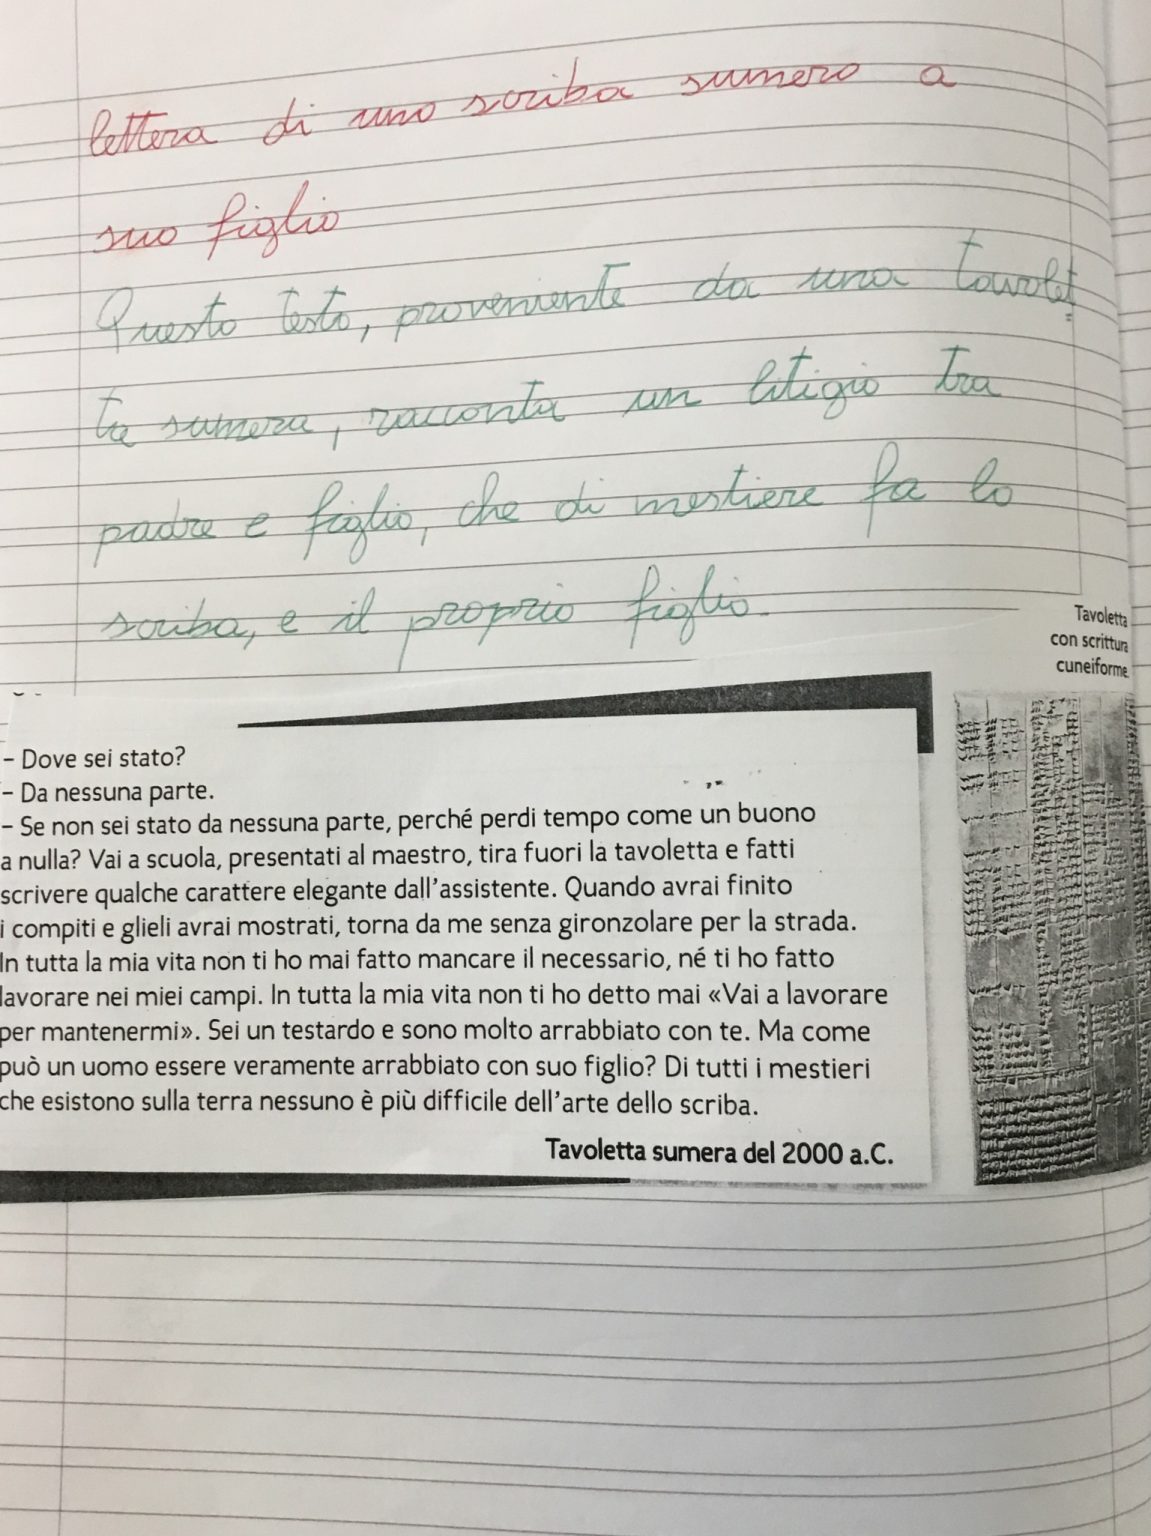 lettera di uno scriba sumero a
suo figlio
Questo testo, proveniente da una tavolet
ta sumera, racconta un litigio tra
padre e figlio, che di mestiere fa lo
scriba, e il proprio figlio.
Tavoletta
con scrittura
cuneiforme
– Dove sei stato?
– Da nessuna parte.
– Se non sei stato da nessuna parte, perché perdi tempo come un buono
a nulla? Vai a scuola, presentati al maestro, tira fuori la tavoletta e fatti
scrivere qualche carattere elegante dall'assistente. Quando avrai finito
i compiti e glieli avrai mostrati, torna da me senza gironzolare per la strada.
In tutta la mia vita non ti ho mai fatto mancare il necessario, né ti ho fatto
lavorare nei miei campi. In tutta la mia vita non ti ho detto mai «Vai a lavorare
per mantenermi». Sei un testardo e sono molto arrabbiato con te. Ma come
può un uomo essere veramente arrabbiato con suo figlio? Di tutti i mestieri
che esistono sulla terra nessuno è più difficile dell'arte dello scriba.
Tavoletta sumera del 2000 a.C.